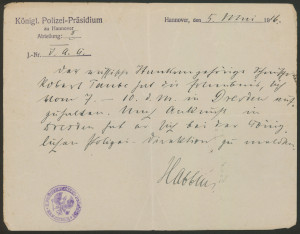 Königl. Polizei-Präsidium
zu Hannover
Abteilung: II
J.-Nr. V. a. 6.
Hannover, den 5. Mai 1916.
Der russische Staatsangehörige
Robert hat die Erlaubnis, sich
vom 7. – 10. d. M. in Dresden auf-
zuhalten. Nach Ankunft in
Dresden hat er sich bei der König-
lichen Polizei-Direktion zu melden.